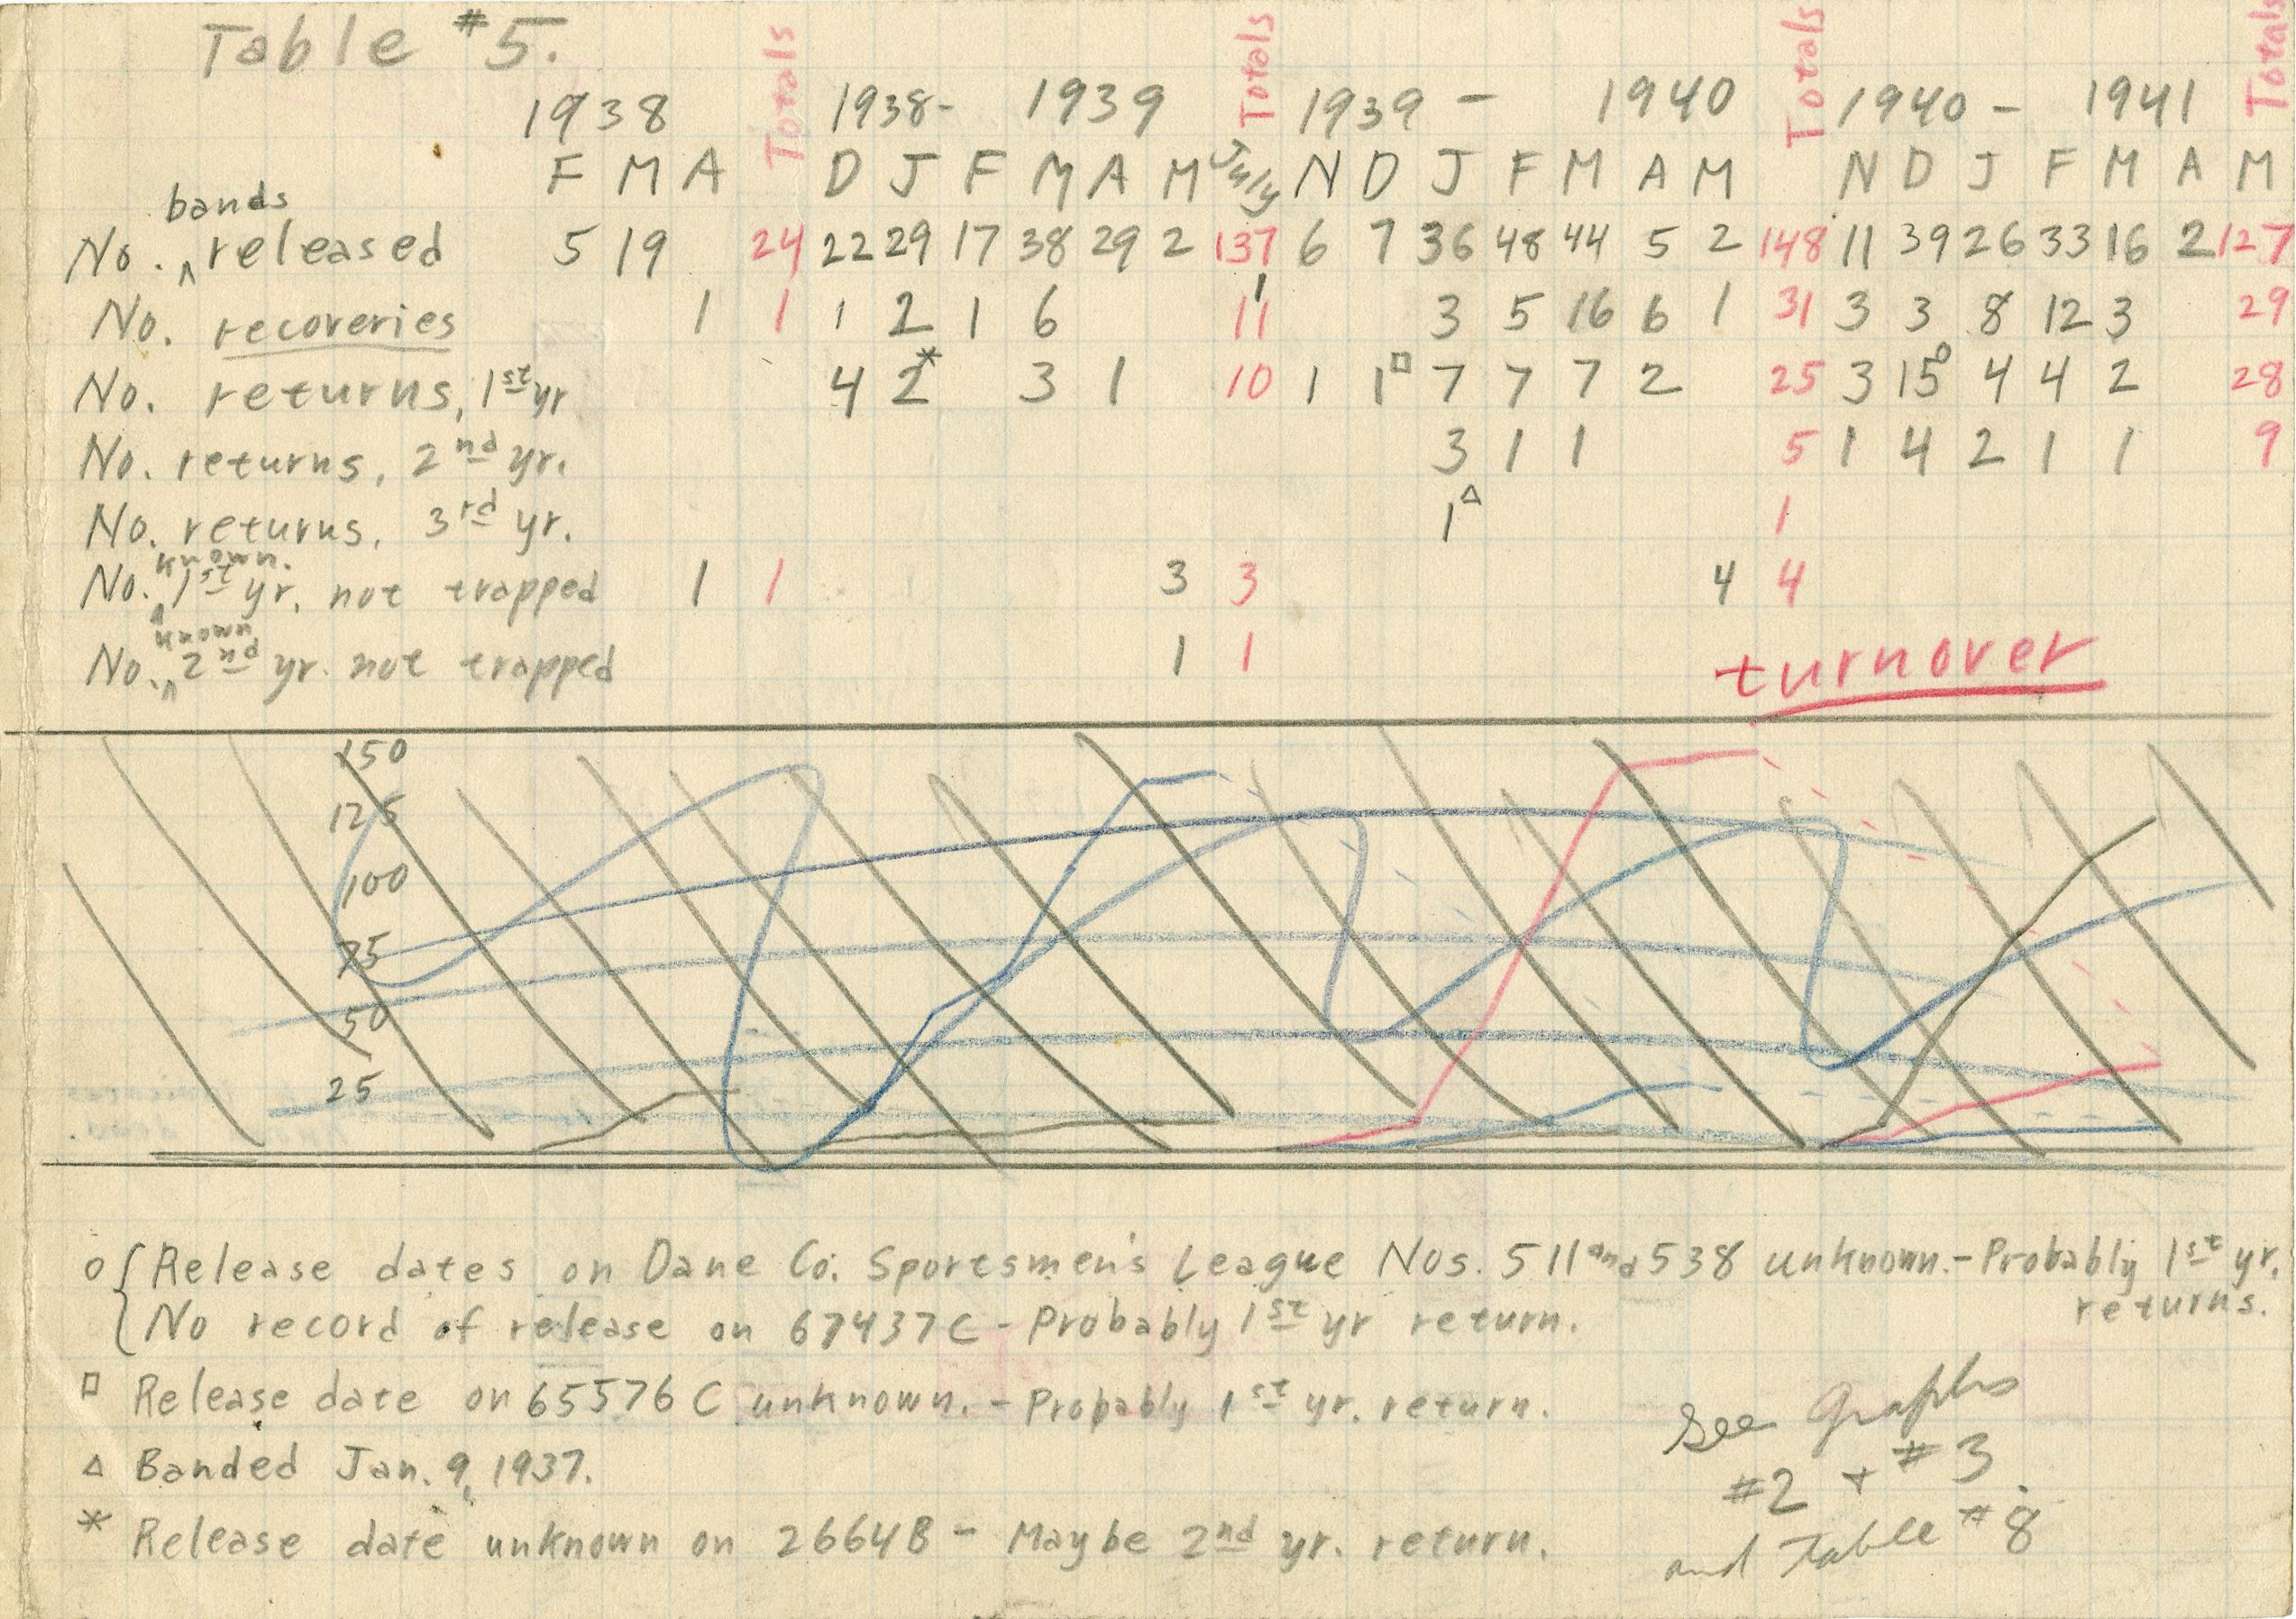 Table #5.
Totals Totals Totals Totals
1938 1938- 1939 1939 - 1940 1940 - 1941
F M A D J F M A M July N D J F M A M N D J F M A M
bands
No. ^ released 5 19 24 22 29 17 38 29 2 137 6 7 36 48 44 5 2 148 11 39 26 33 16 2 127
No. recoveries 1 1 1 2 1 6 1 11 3 5 16 6 1 31 3 3 8 12 3 29
No. returns, 1st yr 4 2* 3 1 10 1 1□ 7 7 7 2 25 3 15o 4 4 2 28
No. returns, 2nd yr. 3 1 1 5 1 4 2 1 1 9
No. returns, 3rd yr. 1△ 1
known.
No. ^ 1st yr. not trapped 1 1 3 3 4 4
known
No. ^ 2nd yr. not trapped 1 1
turnover
150
125
100
75
50
25
o { Release dates on Dane Co. Sportsmen's League Nos. 511 and 538 unknown.- Probably 1st yr.
returns.
No record of release on 67437C - Probably 1st yr return.
□ Release date on 65576C unknown. - Probably 1st yr. return.
△ Banded Jan. 9, 1937.
* Release date unknown on 2664B - Maybe 2nd yr. return.
See Graphs
#2 + #3
and Table #8